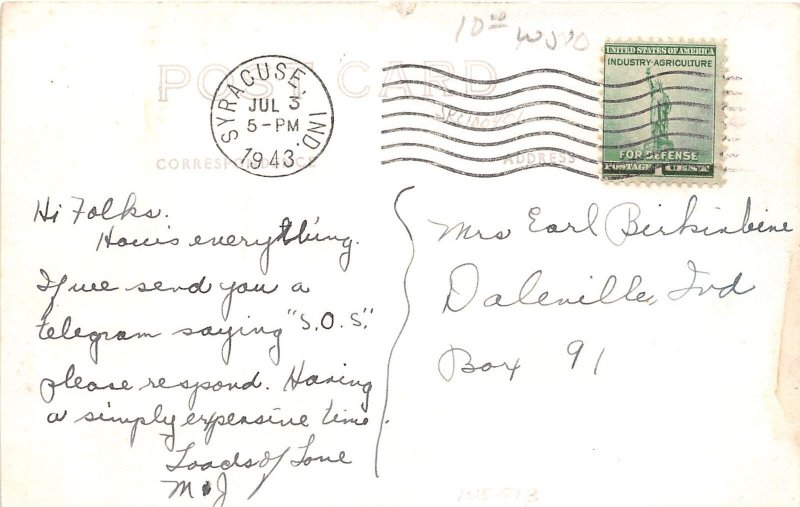 10⁰⁰
POST CARD
SYRACUSE, IND.
JUL 3
5-PM
1943
UNITED STATES OF AMERICA
INDUSTRY-AGRICULTURE
FOR DEFENSE
POSTAGE 1 CENT
CORRESPONDENCE
ADDRESS
Hi Folks.
How's everything.
If we send you a
telegram saying "S.O.S."
please respond. Having
a simply expensive time.
Loads of Love
M & J
Mrs Earl Birkinbine
Daleville, Ind
Box 91